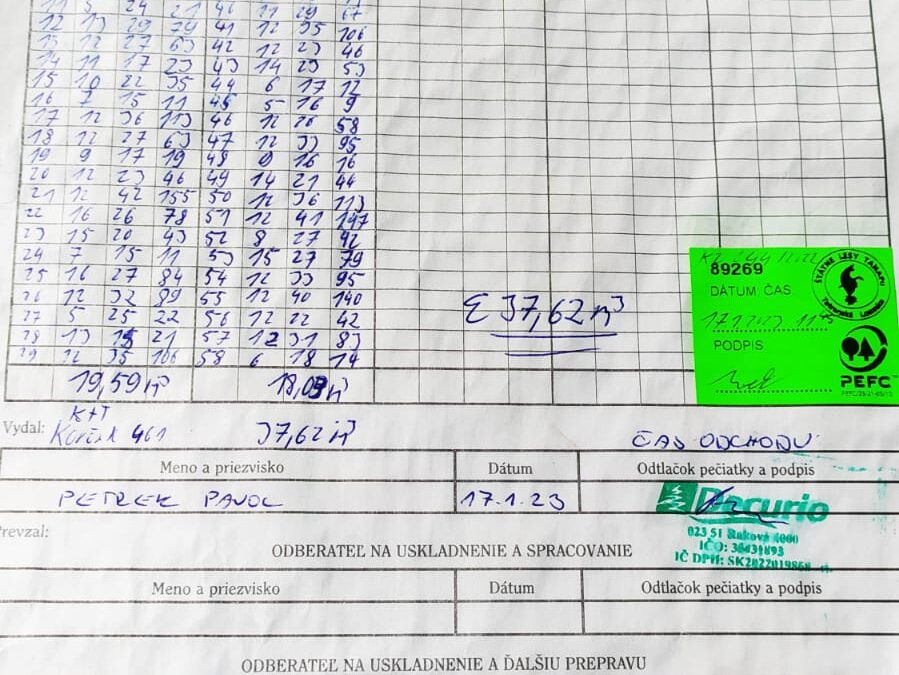 11 5 24 21 40 11 29 67
12 13 29 79 41 12 35 106
13 12 27 63 42 12 23 46
14 11 17 23 43 14 23 53
15 10 22 35 44 6 17 12
16 7 15 11 45 5 16 9
17 12 36 113 46 12 26 58
18 12 27 63 47 12 33 95
19 9 17 19 48 9 16 16
20 12 23 46 49 14 21 44
21 12 42 155 50 12 36 113
22 16 26 78 51 12 41 147
23 15 20 43 52 8 27 42
24 7 15 11 53 15 27 79
25 16 27 84 54 12 33 95
26 12 32 89 55 12 40 140
27 5 25 22 56 12 22 42
28 13 15 21 57 12 31 83
29 12 35 106 58 6 18 14
Σ 37,62 m³
19,59 m³ 18,03 m³
89269
DÁTUM, ČAS
17.1.2023 11⁴⁵
PODPIS
ŠTÁTNE LESY TANAPU
Tatranská Lomnica
PEFC
Vydal: K+T
461 37,62 m³ ČAS ODCHODU
Meno a priezvisko Dátum Odtlačok pečiatky a podpis
PETREK PAVOL 17.1.23
Decurio
023 51 Raková 4000
IČO: 36431893
IČ DPH: SK2022019868
Prevzal:
ODBERATEĽ NA USKLADNENIE A SPRACOVANIE
Meno a priezvisko Dátum Odtlačok pečiatky a podpis
ODBERATEĽ NA USKLADNENIE A ĎALŠIU PREPRAVU